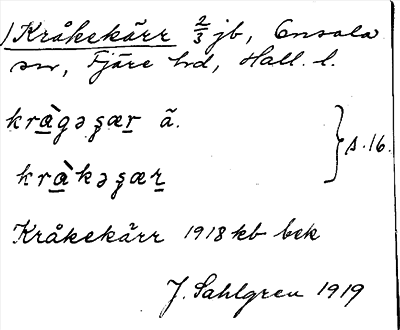 1) Kråkekärr 2/3 jb, Onsala
sn, Fjäre hd, Hall. l.
krå̱̀gəʂæṟ ä. } s. 16.
krå̱̀kəʂæṟ
Kråkekärr 1918 kb bek
J. Sahlgren 1919